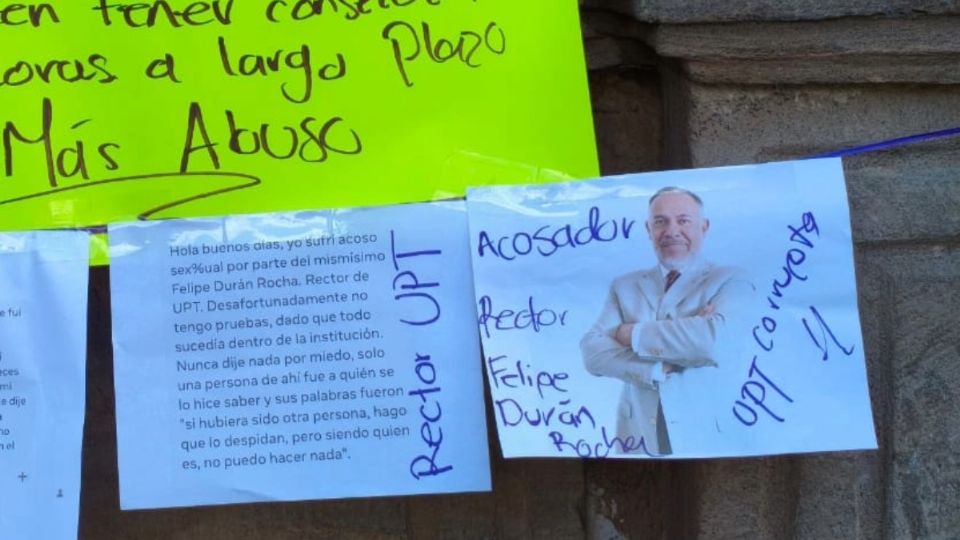 en tener
oras a largo plazo
Más Abuso
e fui
eces
mi
e dije
a
no
en el
Hola buenos días, yo sufrí acoso
sex%ual por parte del mismísimo
Felipe Durán Rocha. Rector de
UPT. Desafortunadamente no
tengo pruebas, dado que todo
sucedía dentro de la institución.
Nunca dije nada por miedo, solo
una persona de ahí fue a quién se
lo hice saber y sus palabras fueron
"si hubiera sido otra persona, hago
que lo despidan, pero siendo quien
es, no puedo hacer nada".
Rector UPT
Acosador
Rector
Felipe
Durán
Rocha
UPT corrupta